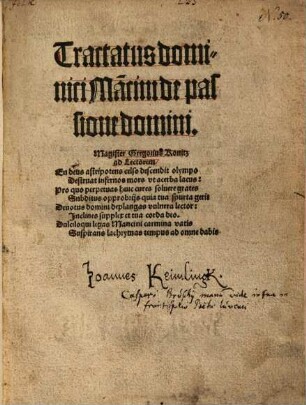 Tractatus domi-
nici Mãcini de pas
sione domini.
Magister Gregorius Konitz
ad Lectorem
En deus astripotens celso descendit olympo
Destinat infernos mors vt acerba lacus:
Pro quo perpetuas huic cures soluere grates
Subditus opprobrijs quia tua spurca gerit
Deuotus domini deplangas vulnera lector:
Inclines supplex et tua corda deo.
Dulciloqui legas Mancini carmina vatis
Suspirans lachrymas tempus ad omne dabis
Joannes Keimlingk.
Caspari Bruschij manu